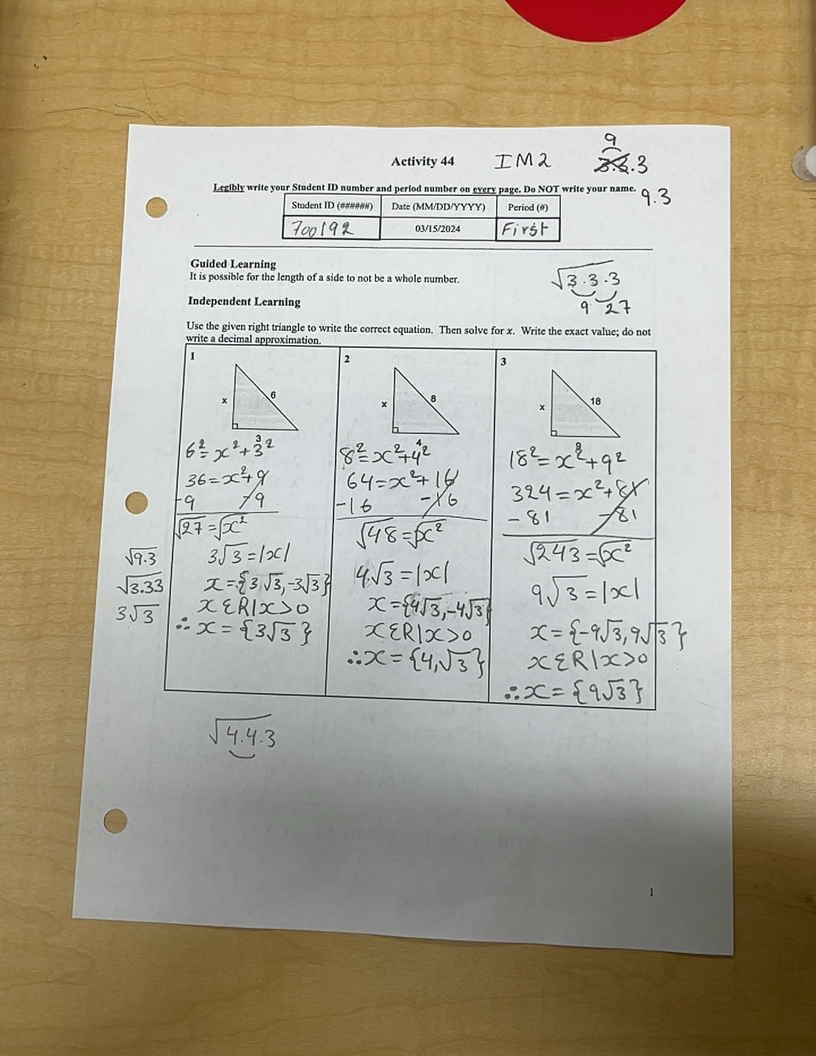 9
Activity 44 IM2 3.3.3
Legibly write your Student ID number and period number on every page. Do NOT write your name.
9.3
Student ID (######) Date (MM/DD/YYYY) Period (#)
700192 03/15/2024 First
Guided Learning
It is possible for the length of a side to not be a whole number.
√3.3.3
9 27
Independent Learning
Use the given right triangle to write the correct equation. Then solve for x. Write the exact value; do not
write a decimal approximation.
1
x 6
3
6²=x²+3²
36=x²+9
-9 -9
√27=√x²
3√3=|x|
x={3√3,-3√3}
xƐR|x>0
∴x={3√3}
2
x 8
4
8²=x²+4²
64=x²+16
-16 -16
√48=√x²
4√3=|x|
x={4√3,-4√3}
xƐR|x>0
∴x={4,√3}
3
x 18
9
18²=x²+9²
324=x²+81
-81 -81
√243=√x²
9√3=|x|
x={-9√3,9√3}
xƐR|x>0
∴x={9√3}
√9.3
√3.33
3√3
√4.4.3
1